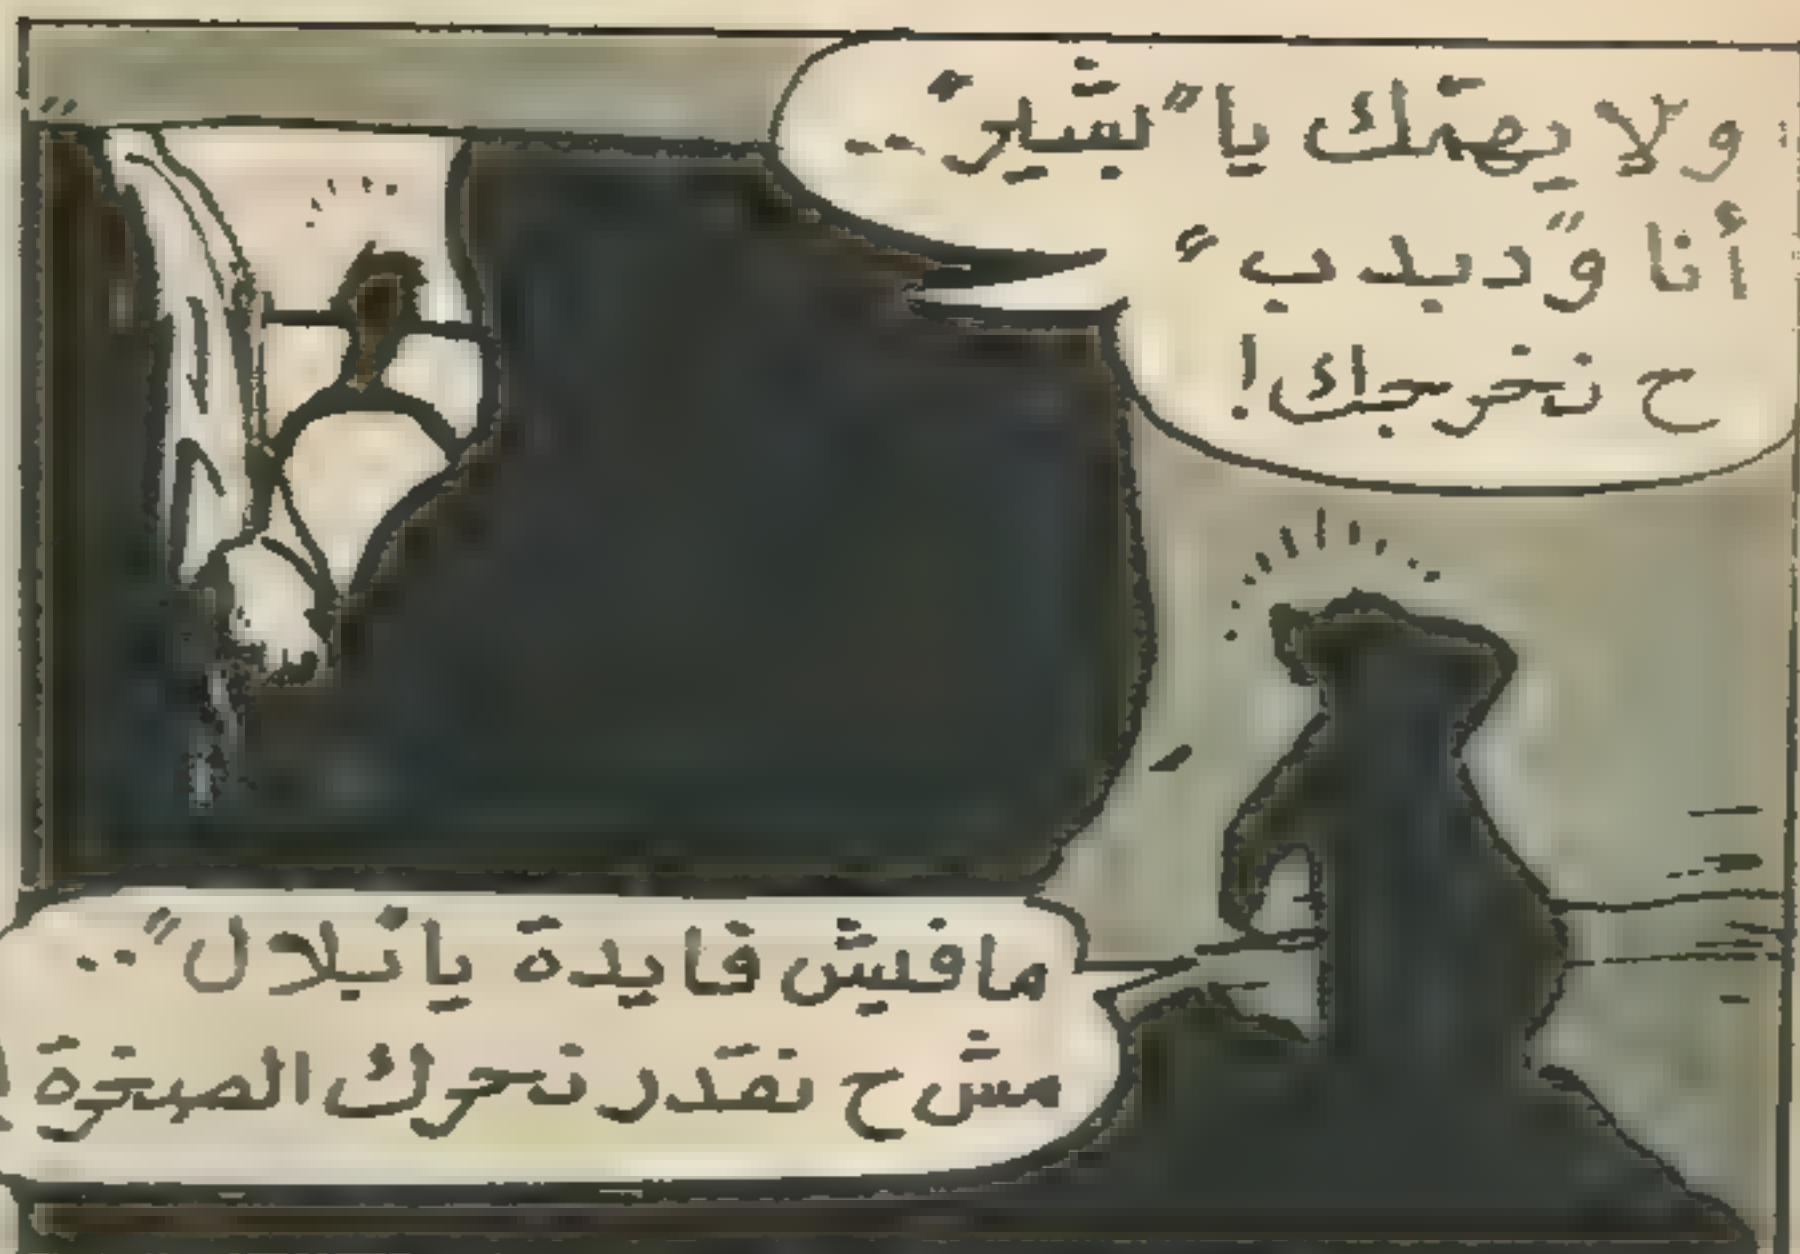 ولا يهمّك يا "بشير" ..
أنا و "دبدب"
ح نخرجك!
مافيش فايدة يا "بلال" ..
مش ح نقدر نحرك الصخرة